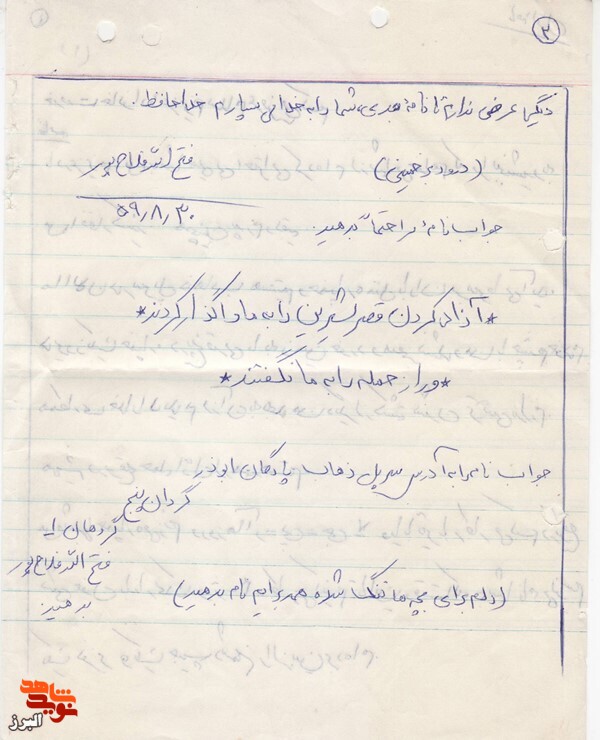 ۳
دیگر عرضی ندارم تا نامهٔ بعدی، شما را به خدا می سپارم خداحافظ.
(درود بر خمینی) فتح الله فلاح پور
جواب نامهٔ مرا حتماً بدهید. ۵۹/۸/۳۰
*آزاد کردن قصرشیرین را به ما واگذار کردند*
*و راز حمله را به ما نگفتند*
جواب نامه را به آدرس سرپل ذهاب پادگان ابوذر
گردان پنج
گروهان
فتح الله فلاح پور
بدهید
(دلم برای بچه ها تنگ شده همه برایم نامه بدهید)
نوید شاهد
البرز